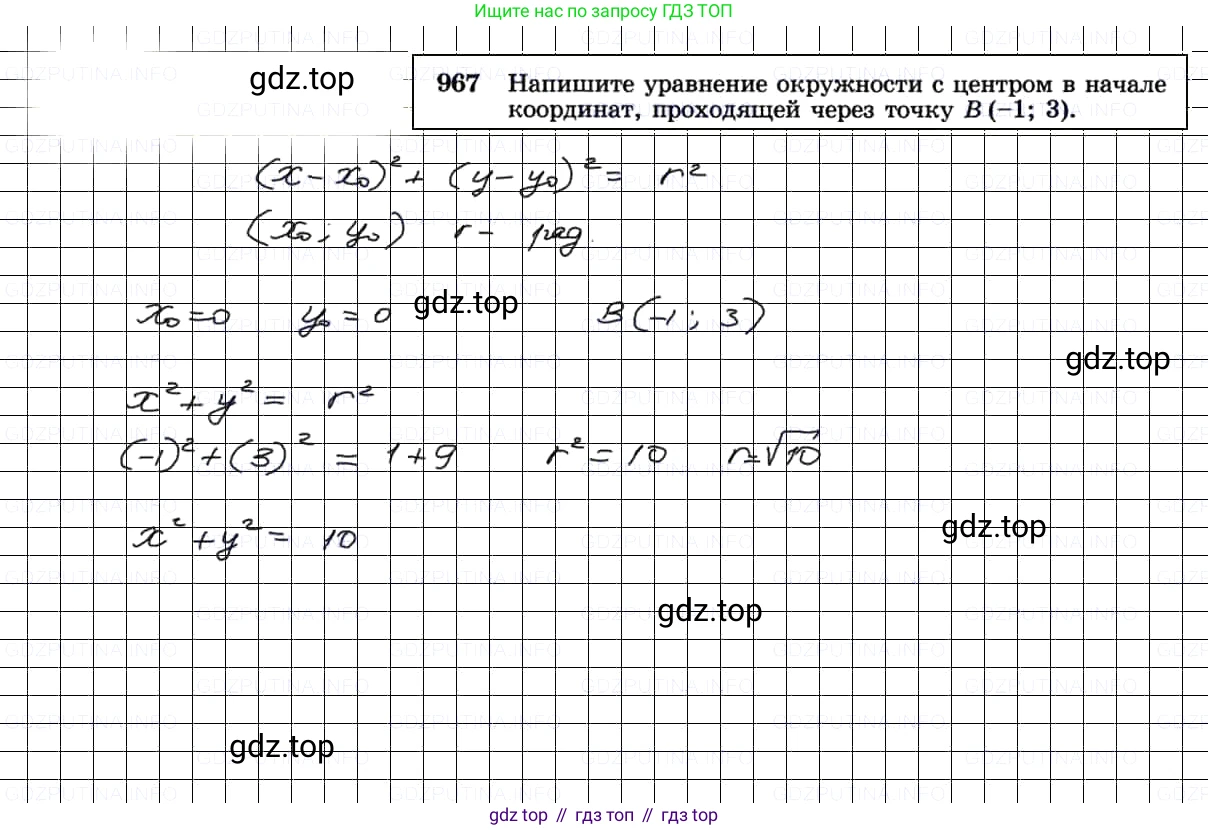 Ищите нас по запросу ГДЗ ТОП
gdz.top
967 Напишите уравнение окружности с центром в начале
координат, проходящей через точку B (−1; 3).
(x − x₀)² + (y − y₀)² = r²
(x₀; y₀) r − рад.
x₀ = 0 y₀ = 0 gdz.top B (−1; 3)
gdz.top
x² + y² = r²
(−1)² + (3)² = 1 + 9 r² = 10 r = √10
x² + y² = 10 gdz.top
gdz.top
gdz.top
gdz top // гдз топ // гдз top